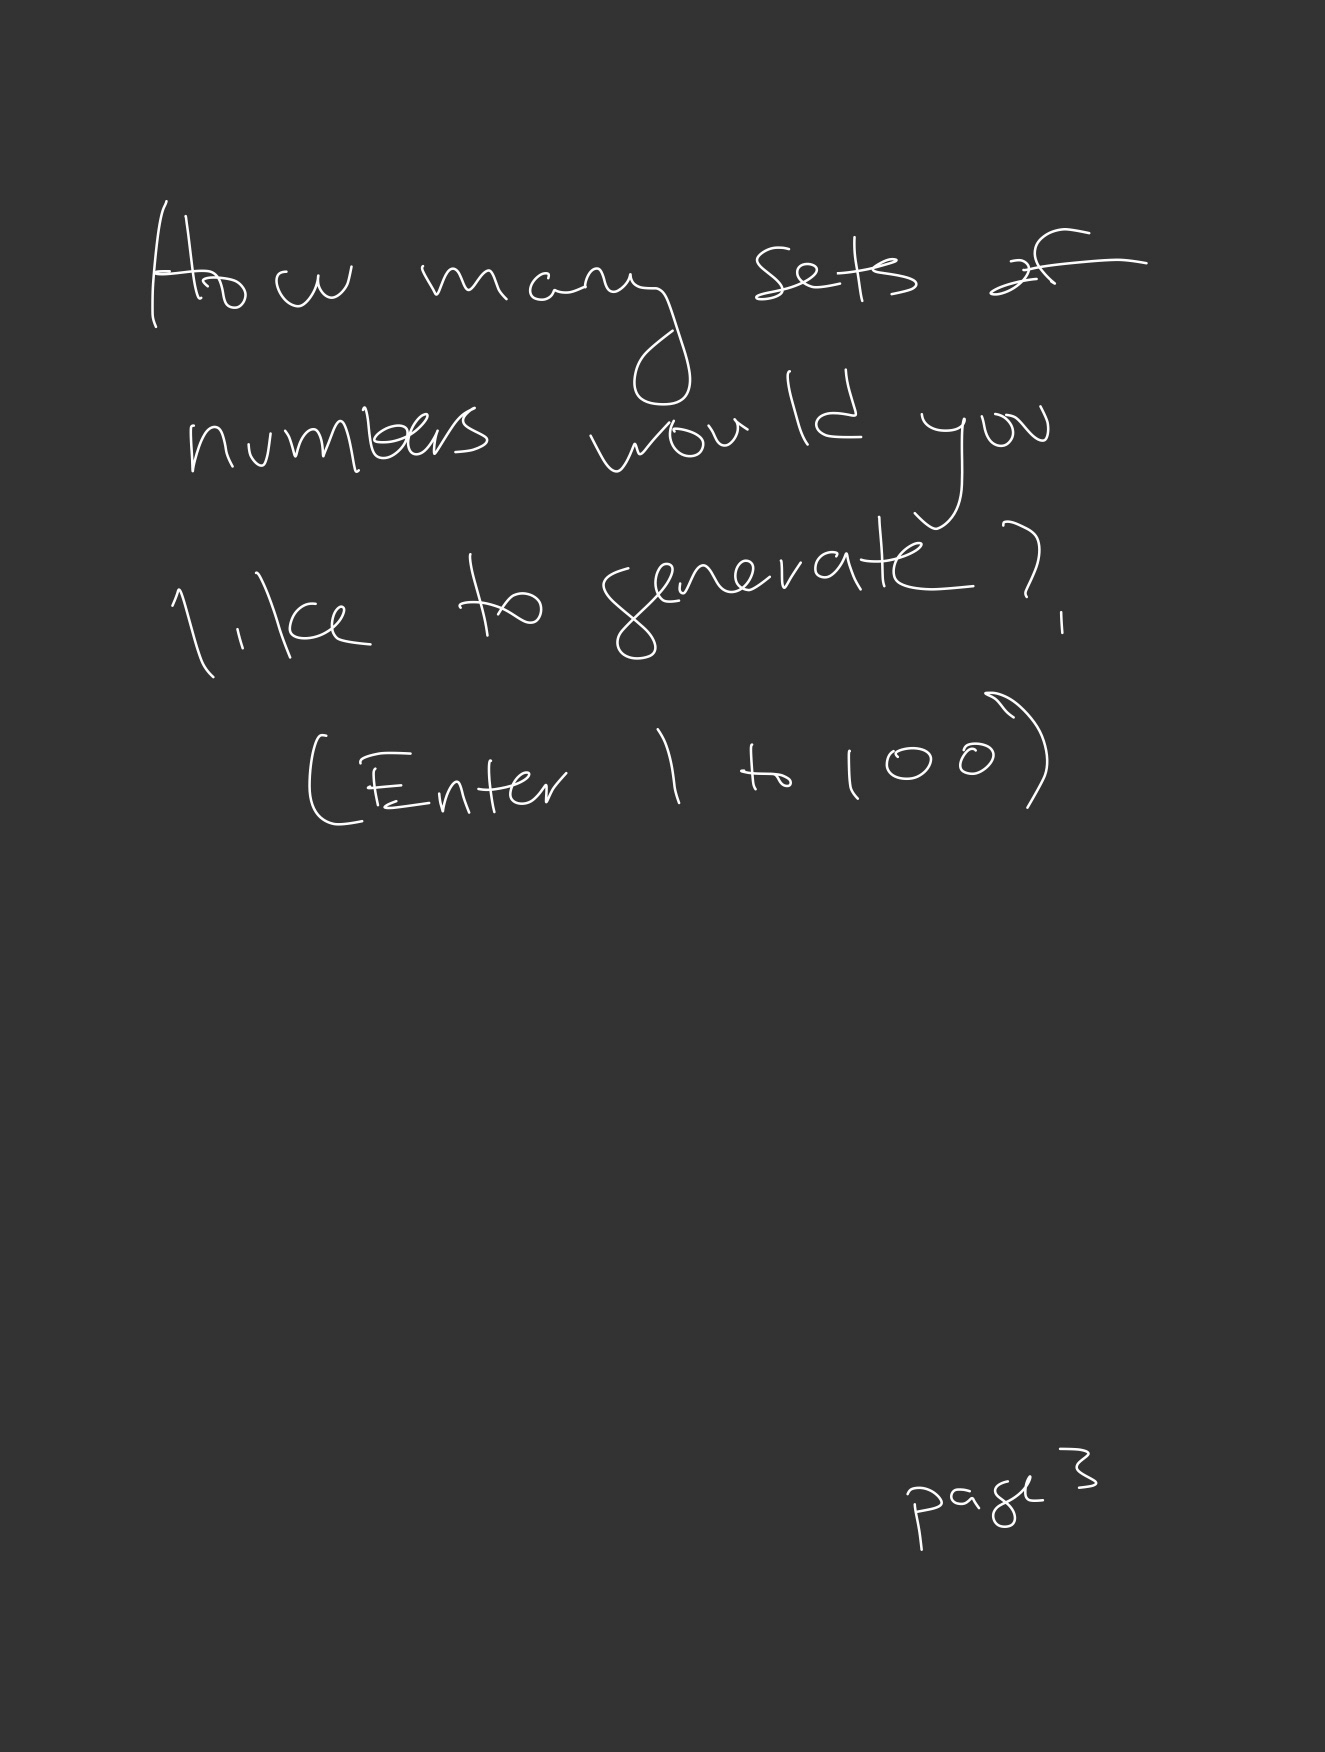 How many sets of
numbers would you
like to generate?
(Enter 1 to 100)
page 3